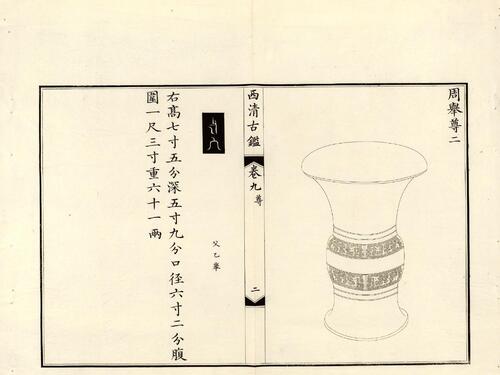 周舉尊二
西清古鑑
卷九
尊
二
父乙舉
右髙七寸五分深五寸九分口徑六寸二分腹
圍一尺三寸重六十一兩